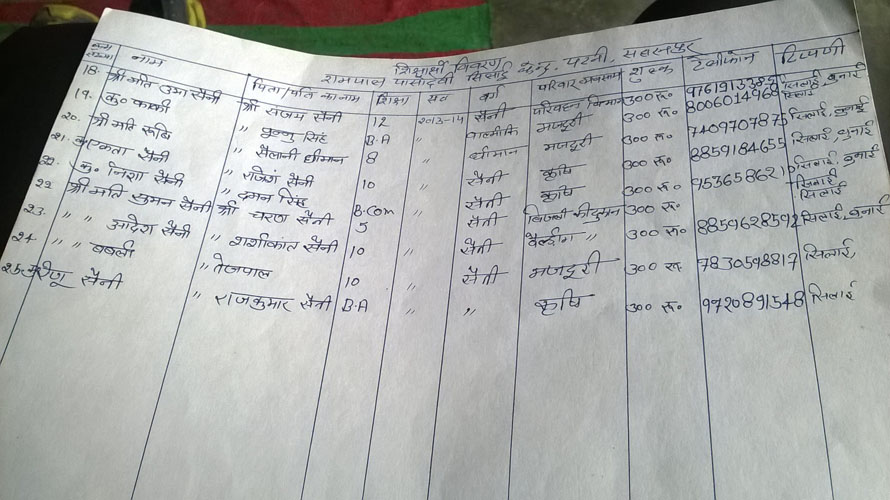 शिक्षार्थी विवरण
रामपाल पासादेवी सिलाई केन्द्र पटनी, सबसपुर
क्रम संख्या नाम पिता/पति का नाम शिक्षा सत्र वर्ग परिवार व्यवसाय शुल्क टेलीफोन टिप्पणी
18. श्री मति उमा सैनी श्री संजय सैनी 12 2013-14 सैनी परिवहन विभाग 300 रु० सिलाई, बुनाई
19. कु० काकी " सिंह B.A " वाल्मीकि मजदूरी 300 रु० 8006014968 सिलाई
20. श्री मति रूचि " सैलानी धीमान 8 " धीमान मजदूरी 300 रु० 7409707875 सिलाई, बुनाई
21. कु० लता सैनी " राजेश सैनी 10 " सैनी कृषि 300 रु० 8859184655 सिलाई, बुनाई
22. कु० निशा सैनी " सिंह B.Com " सैनी कृषि 300 रु० 9536586210 सिलाई, बुनाई
22. श्री मति सुमन सैनी श्री चरण सैनी 5 " सैनी बिजली की दुकान 300 रु० सिलाई
23. " " आदेश सैनी " शशीकांत सैनी 10 " सैनी वैल्डींग " 300 रु० 8859628592 सिलाई, बुनाई
24 " " बबली " तेजपाल 10 " सैनी मजदूरी 300 रु० 7830598817 सिलाई,
25 रेणू सैनी " राजकुमार सैनी B.A " " कृषि 300 रु० 9720891548 सिलाई